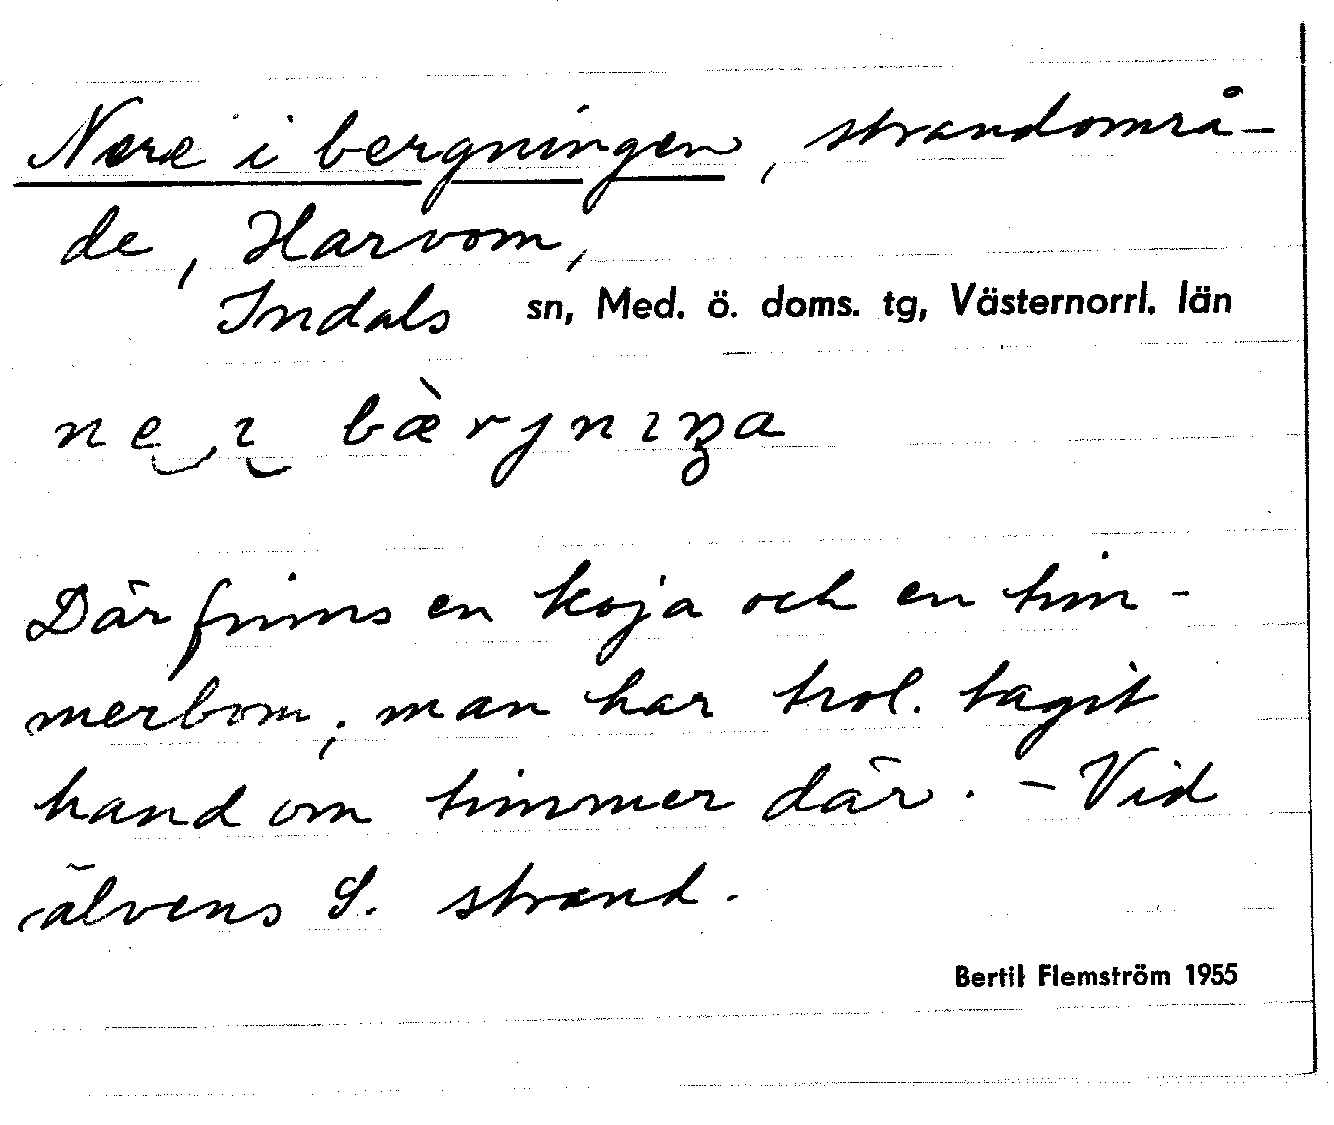 Nere i bergningen, strandområ-
de, Harvom,
Indals sn, Med. ö. doms. tg, Västernorrl. län
ne‿ɩ‿ bæ̀rjnɩŋa
Där finns en koja och en tim-
merbom; man har trol. tagit
hand om timmer där. – Vid
älvens S. strand.
Bertil Flemström 1955